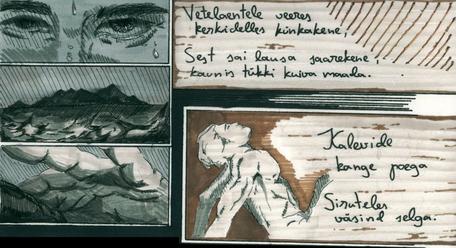 Vetelaentele veeres
kerkidelles künkakene,
Sest sai lausa saarekene,
kaunis tükki kuiva maada.
Kalevide
kange poega
Sirutelles
väsind selga.